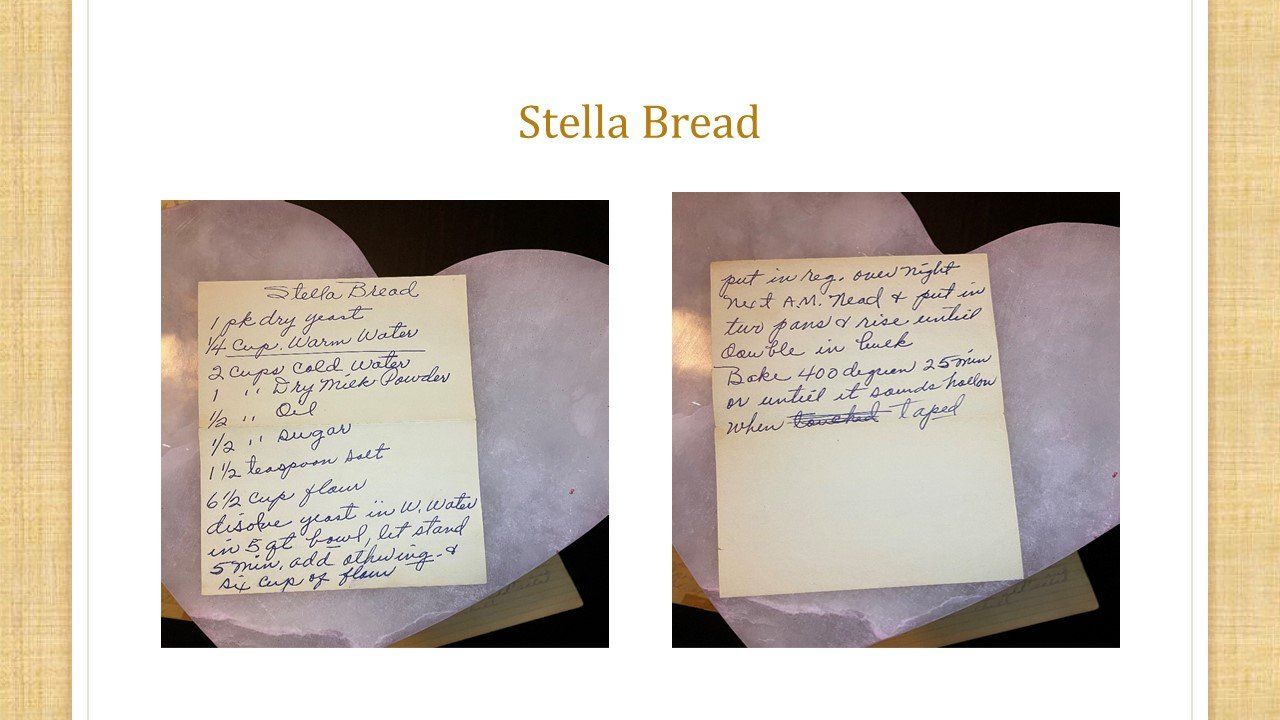 Stella Bread
Stella Bread
1 pk dry yeast
1/4 Cup Warm Water
2 Cups Cold Water
1 " Dry Milk Powder
1/2 " Oil
1/2 " Sugar
1 1/2 teaspoon salt
6 1/2 Cup flour
disolve yeast in W. Water
in 5 qt bowl, let stand
5 min. add other ing. &
six cup of flour
put in reg. over night
next A.M. Nead & put in
two pans & rise untiil
double in bulk
Bake 400 degrees 25 min
or untiil it sounds hollow
when touched taped